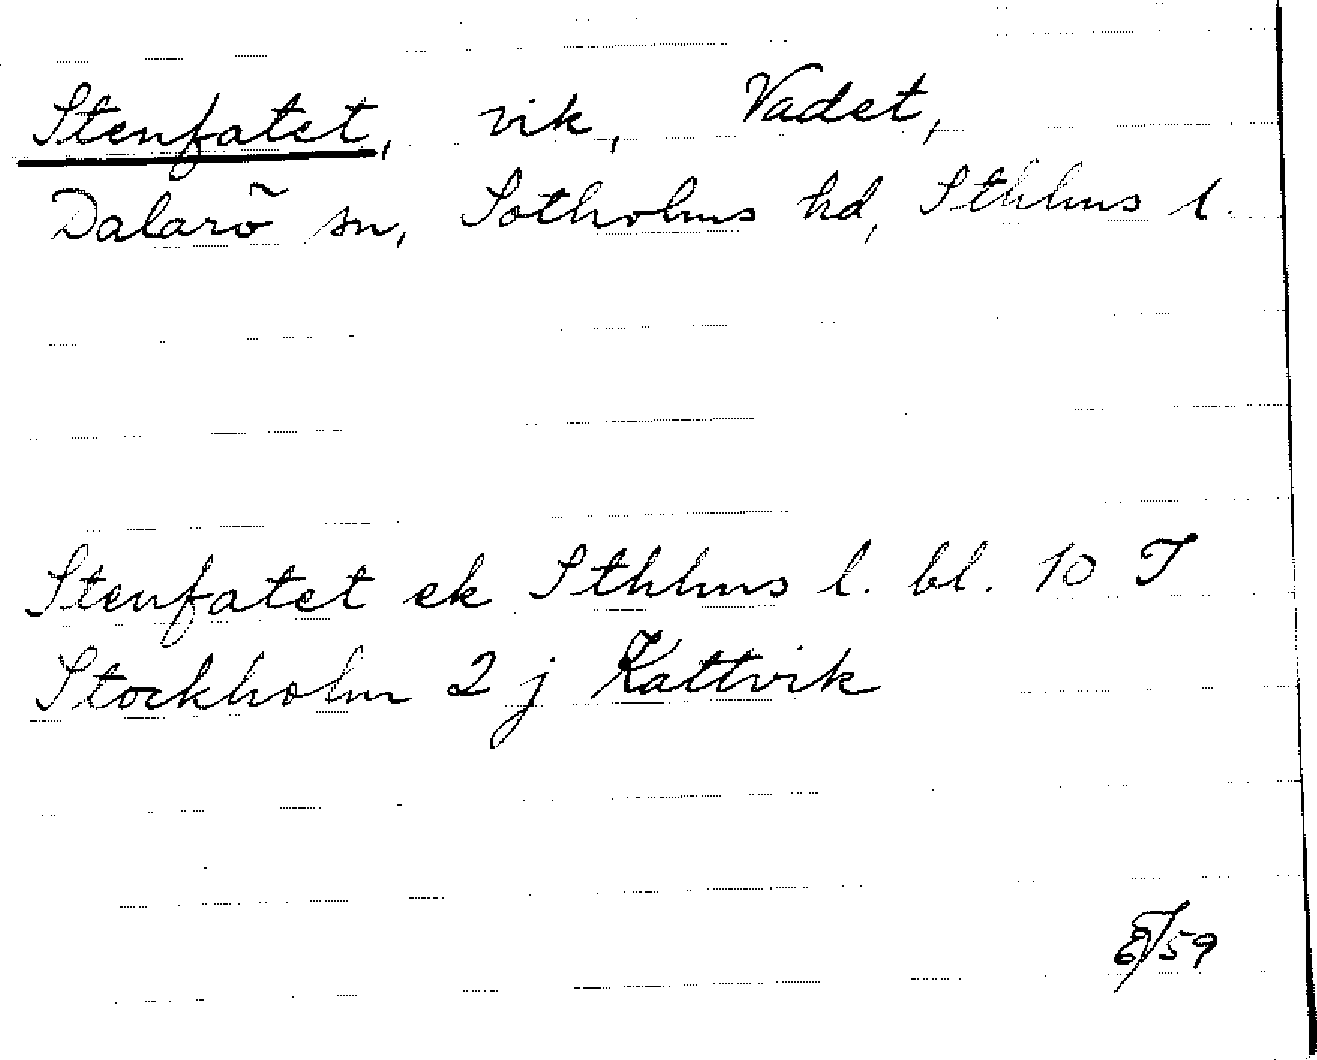 Stenfatet, vik, Vadet,
Dalarö sn, Sotholms hd, Sthlms l.
Stenfatet ek Sthlms l. bl. 10 J
Stockholm 2 j Kattvik